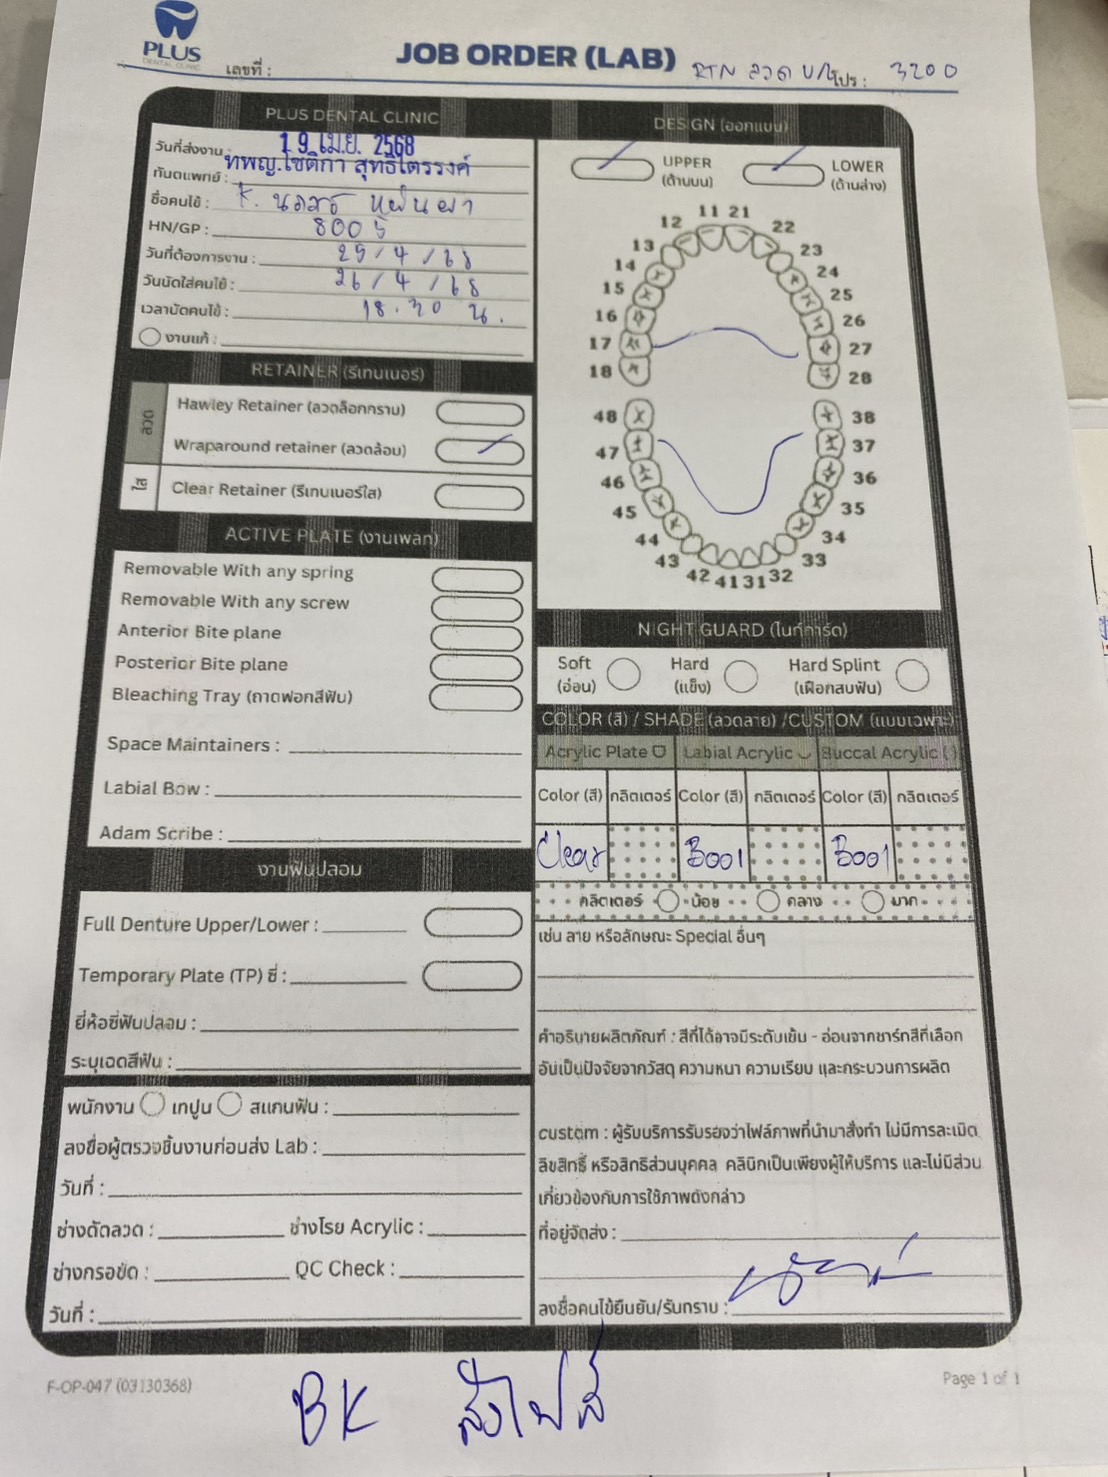 PLUS
DENTAL CLINIC
JOB ORDER (LAB)
เลขที่ :
RTN ลวด U/L โปร : 3200
PLUS DENTAL CLINIC
วันที่ส่งงาน : 19 เม.ย. 2568
ทันตแพทย์ : ทพญ.โชติกา สุทธิไตรรงค์
ชื่อคนไข้ :
HN/GP : 8005
วันที่ต้องการงาน : 25/4/68
วันนัดใส่คนไข้ : 26/4/68
เวลานัดคนไข้ : 18.30 น.
งานแก้ :
RETAINER (รีเทนเนอร์)
ลวด
Hawley Retainer (ลวดล็อกกราม)
Wraparound retainer (ลวดล้อม)
ใส
Clear Retainer (รีเทนเนอร์ใส)
ACTIVE PLATE (งานเพลท)
Removable With any spring
Removable With any screw
Anterior Bite plane
Posterior Bite plane
Bleaching Tray (ถาดฟอกสีฟัน)
Space Maintainers :
Labial Bow :
Adam Scribe :
งานฟันปลอม
Full Denture Upper/Lower :
Temporary Plate (TP) ซี่ :
ยี่ห้อซี่ฟันปลอม :
ระบุเฉดสีฟัน :
พนักงาน เทปูน สแกนฟัน :
ลงชื่อผู้ตรวจชิ้นงานก่อนส่ง Lab :
วันที่ :
ช่างดัดลวด : ช่างโรย Acrylic :
ช่างกรอขัด : QC Check :
วันที่ :
DESIGN (ออกแบบ)
UPPER
(ด้านบน)
LOWER
(ด้านล่าง)
11 21
12 22
13 23
14 24
15 25
16 26
17 27
18 28
48 38
47 37
46 36
45 35
44 34
43 33
42 41 31 32
NIGHT GUARD (ไนท์การ์ด)
Soft
(อ่อน)
Hard
(แข็ง)
Hard Splint
(เฝือกสบฟัน)
COLOR (สี) / SHADE (ลวดลาย) /CUSTOM (แบบเฉพาะ)
Acrylic Plate Labial Acrylic Buccal Acrylic ( )
Color (สี) กลิตเตอร์ Color (สี) กลิตเตอร์ Color (สี) กลิตเตอร์
Clear B001 B001
กลิตเตอร์ น้อย กลาง มาก
เช่น ลาย หรือลักษณะ Special อื่นๆ
คำอธิบายผลิตภัณฑ์ : สีที่ได้อาจมีระดับเข้ม - อ่อนจากชาร์ทสีที่เลือก
อันเป็นปัจจัยจากวัสดุ ความหนา ความเรียบ และกระบวนการผลิต
custom : ผู้รับบริการรับรองว่าไฟล์ภาพที่นำมาสั่งทำ ไม่มีการละเมิด
ลิขสิทธิ์ หรือสิทธิส่วนบุคคล คลินิกเป็นเพียงผู้ให้บริการ และไม่มีส่วน
เกี่ยวข้องกับการใช้ภาพดังกล่าว
ที่อยู่จัดส่ง :
ลงชื่อคนไข้ยืนยัน/รับทราบ :
F-OP-047 (03130368)
Page 1 of 1
BK ส่งไฟล์